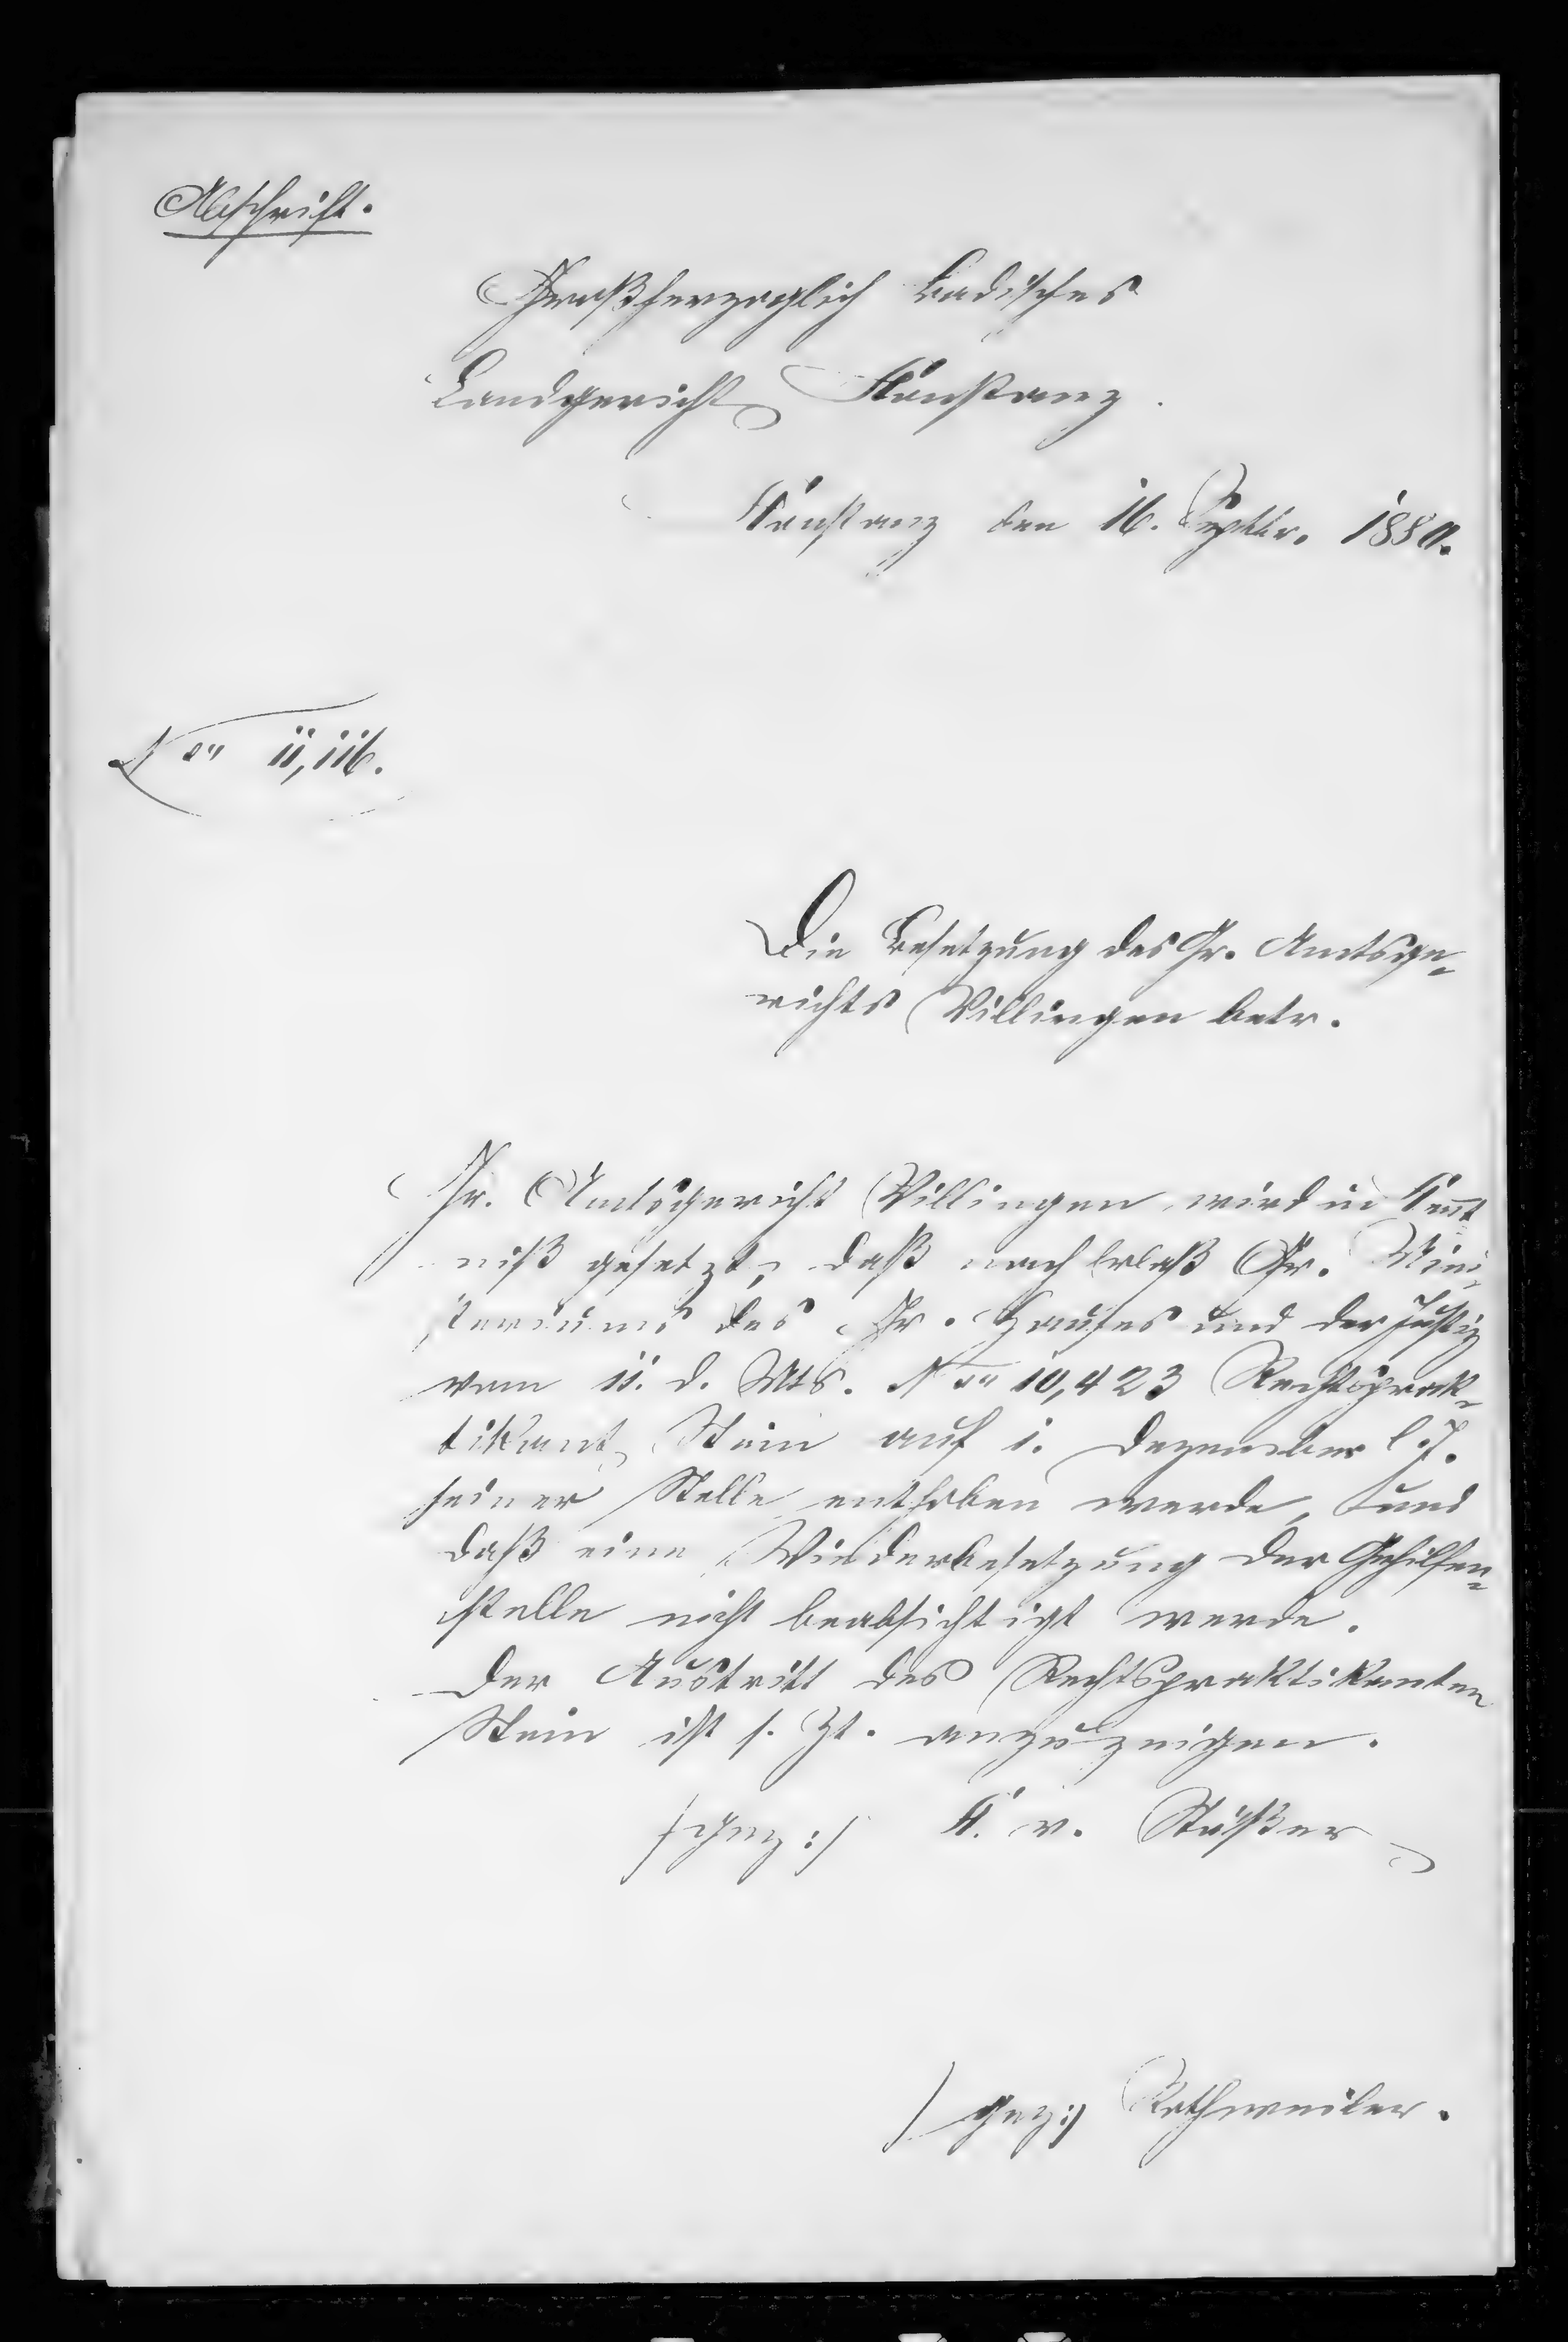 Abschrift.
Großherzoglich Badisches
Landgericht Konstanz.
Konstanz den 16. Septbr. 1880.
Nro 11,116.
Die Besetzung des Gr. Amtsge-
richts Villingen betr.
Gr. Amtsgericht Villingen wird in Kennt
niß gesetzt, daß nach Erlaß Gr. Mini-
steriums des Gr. Hauses und der Justiz
vom 11. d. Mts. Nro 10,423 Rechtsprak-
tikant Stein auf 1. Dezember l. J.
seiner Stelle enthoben werde, und
daß eine Wiederbesetzung der Gehilfen-
stelle nicht beabsichtigt werde.
Der Austritt des Rechtspraktikanten
Stein ist s. Zt. anzuzeigen.
/:gez:/ K. v. Stößer
/:gez:/ Rothweiler.